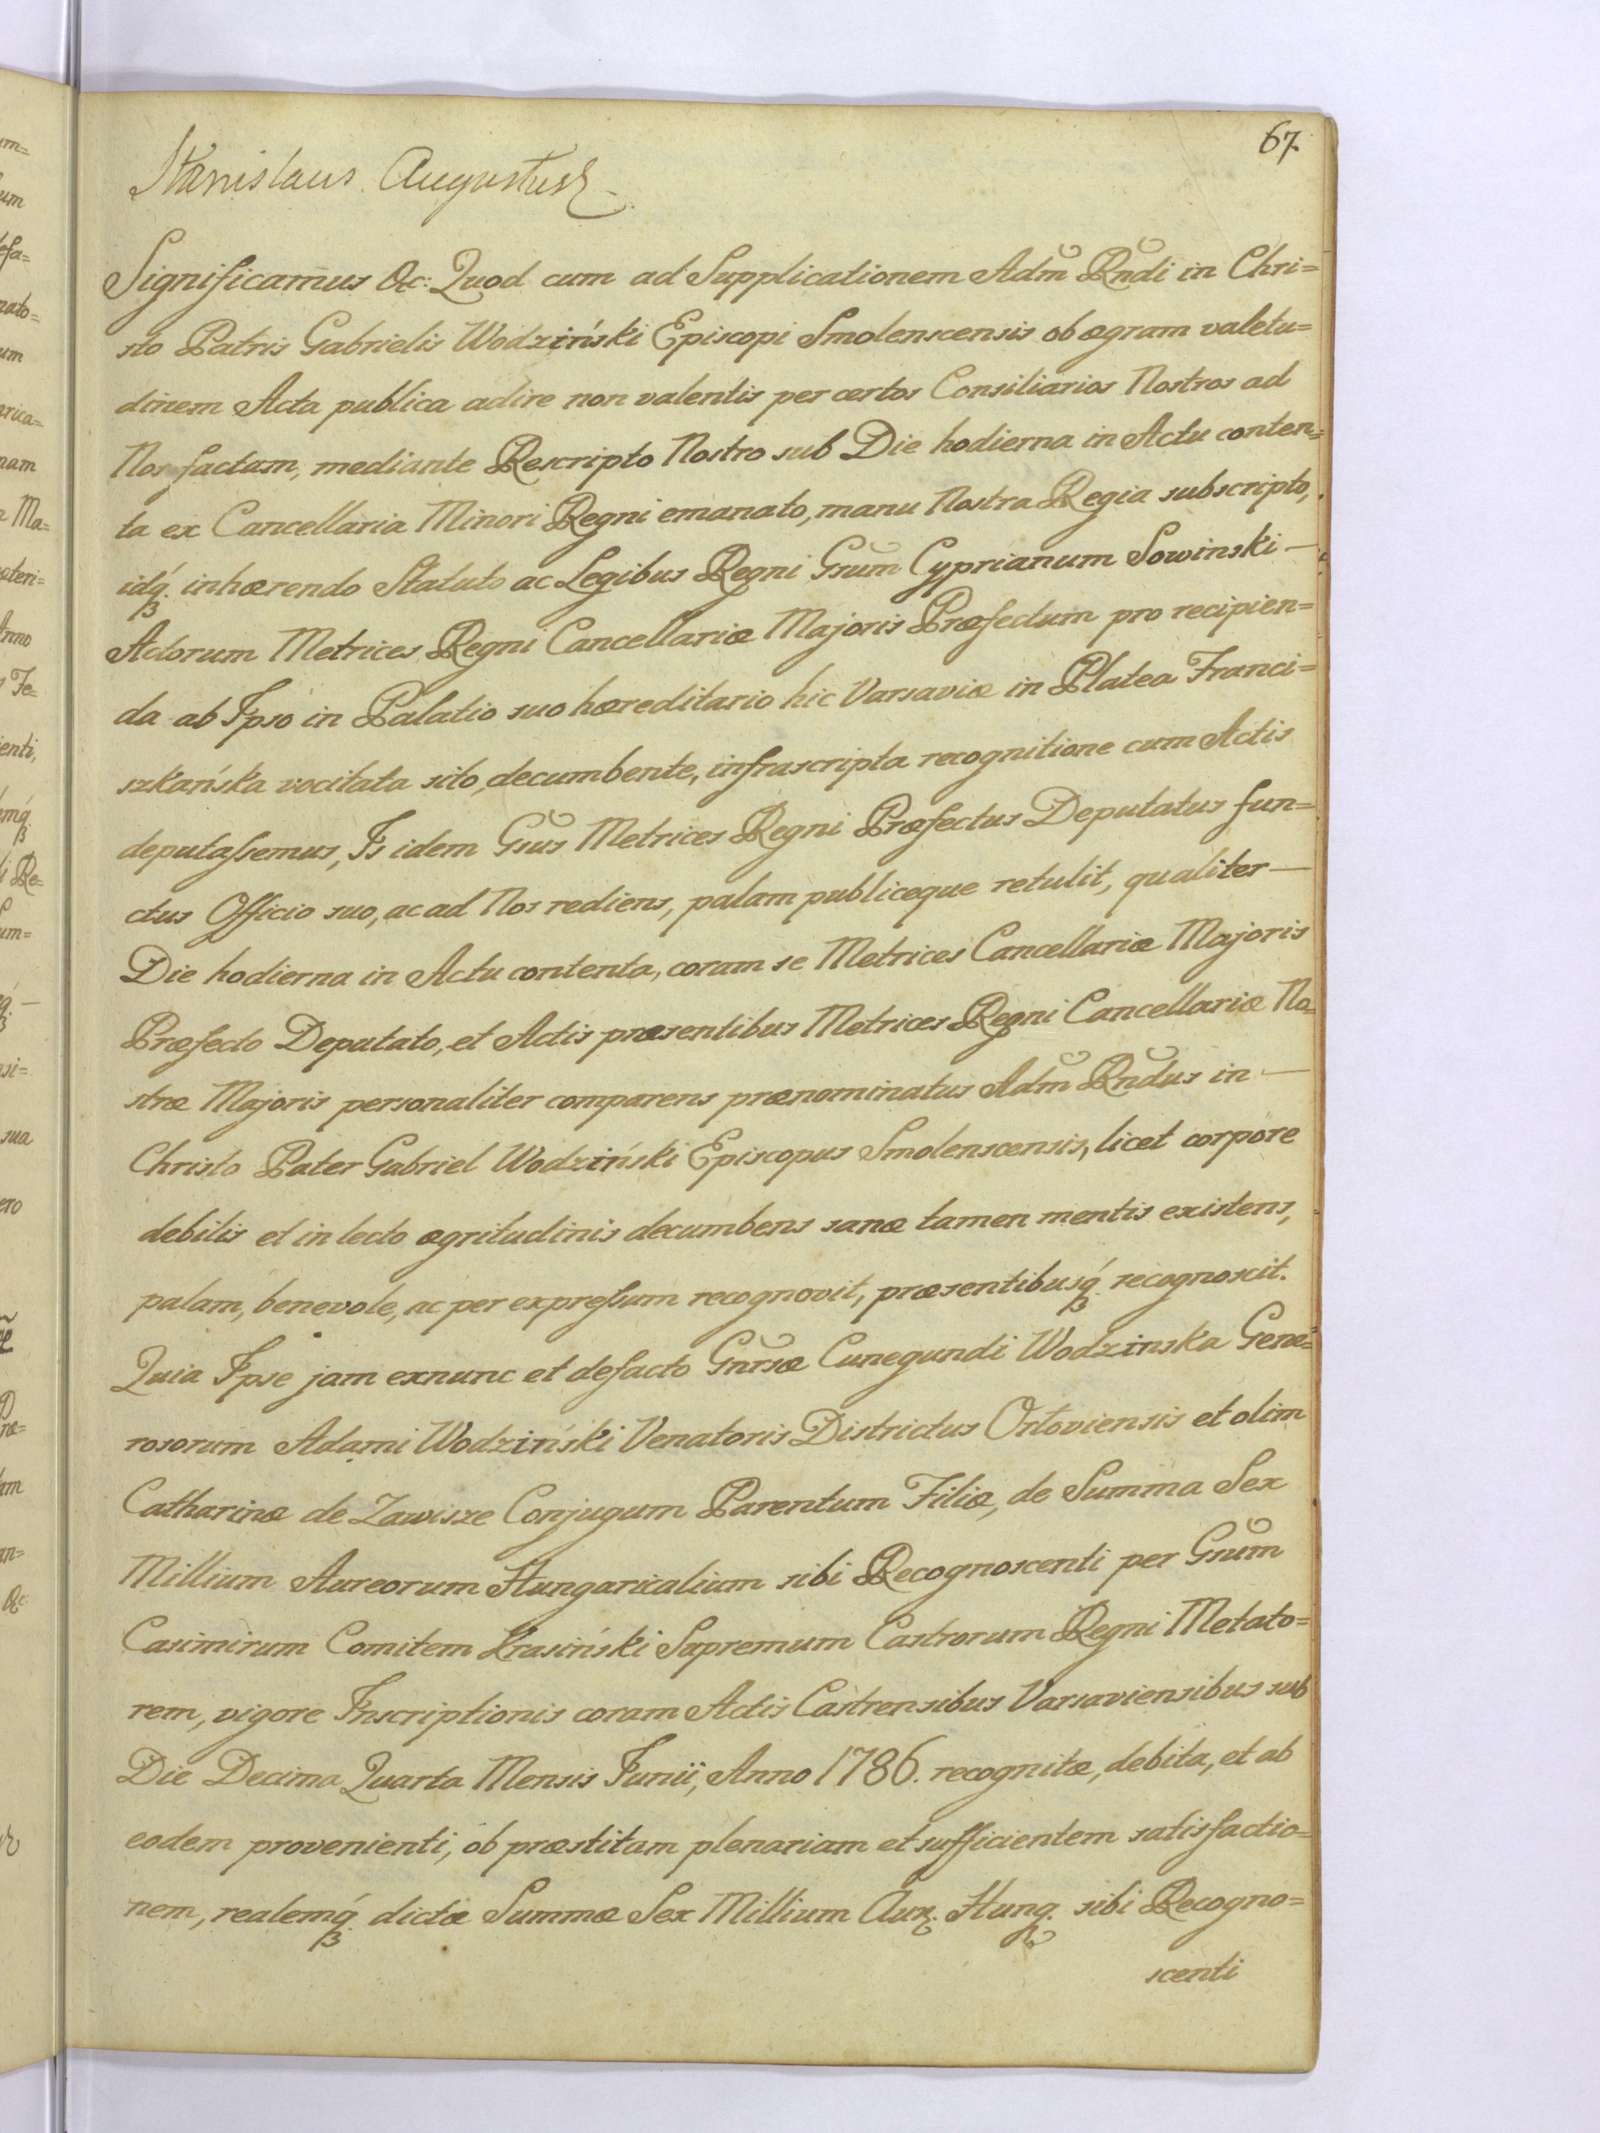 67.
Stanislaus Augustus
Significamus &c: Quod cum ad Supplicationem Adm̃ Rñdi in Chri=
sto Patris Gabrielis Wodziński Episcopi Smolenscensis ob ægram valetu=
dinem Acta publica adire non valentis per certos Consiliarios Nostros ad
Nos factam, mediante Rescripto Nostro sub Die hodierna in Actu conten=
ta ex Cancellaria Minori Regni emanato, manu Nostra Regia subscripto,
idq́ꝫ inhærendo Statuto ac Legibus Regni Gsum̃ Cyprianum Sowinski —
Actorum Metrices Regni Cancellariæ Majoris Præfectum pro recipien=
da ab Ipso in Palatio suo hæreditario hic Varsaviæ in Platea Franci=
szkańska vocitata sito, decumbente, infrascripta recognitione cum Actis
deputassemus, Is idem Gsũs Metrices Regni Præfectus Deputatus fun=
ctus Officio suo, ac ad Nos rediens, palam publiceque retulit, qualiter —
Die hodierna in Actu contenta, coram se Metrices Cancellariæ Majoris
Præfecto Deputato, et Actis præsentibus Metrices Regni Cancellariæ No=
stræ Majoris personaliter comparens prænominatus Adm̃ Rñdus in —
Christo Pater Gabriel Wodziński Episcopus Smolenscensis, licet corpore
debilis et in lecto ægritudinis decumbens sanæ tamen mentis existens,
palam, benevole, ac per expressum recognovit, præsentibusq́ꝫ recognoscit.
Quia Ipse jam exnunc et defacto Gnr̃sæ Cunegundi Wodzinska Gene=
rosorum Adami Wodziński Venatoris Districtus Orłoviensis et olim
Catharinæ de Zawisze Conjugum Parentum Filiæ, de Summa Sex
Millium Aureorum Hungaricalium sibi Recognoscenti per Gsum̃
Casimirum Comitem Krasiński Supremum Castrorum Regni Metato=
rem, vigore Inscriptionis coram Actis Castrensibus Varsaviensibus sub
Die Decima Quarta Mensis Junii, Anno 1786. recognitæ, debita, et ab
eodem provenienti, ob præstitam plenariam et sufficientem satisfactio=
nem, realemq́ꝫ dictæ Summæ Sex Millium Aur. Hung. sibi Recogno=
scenti